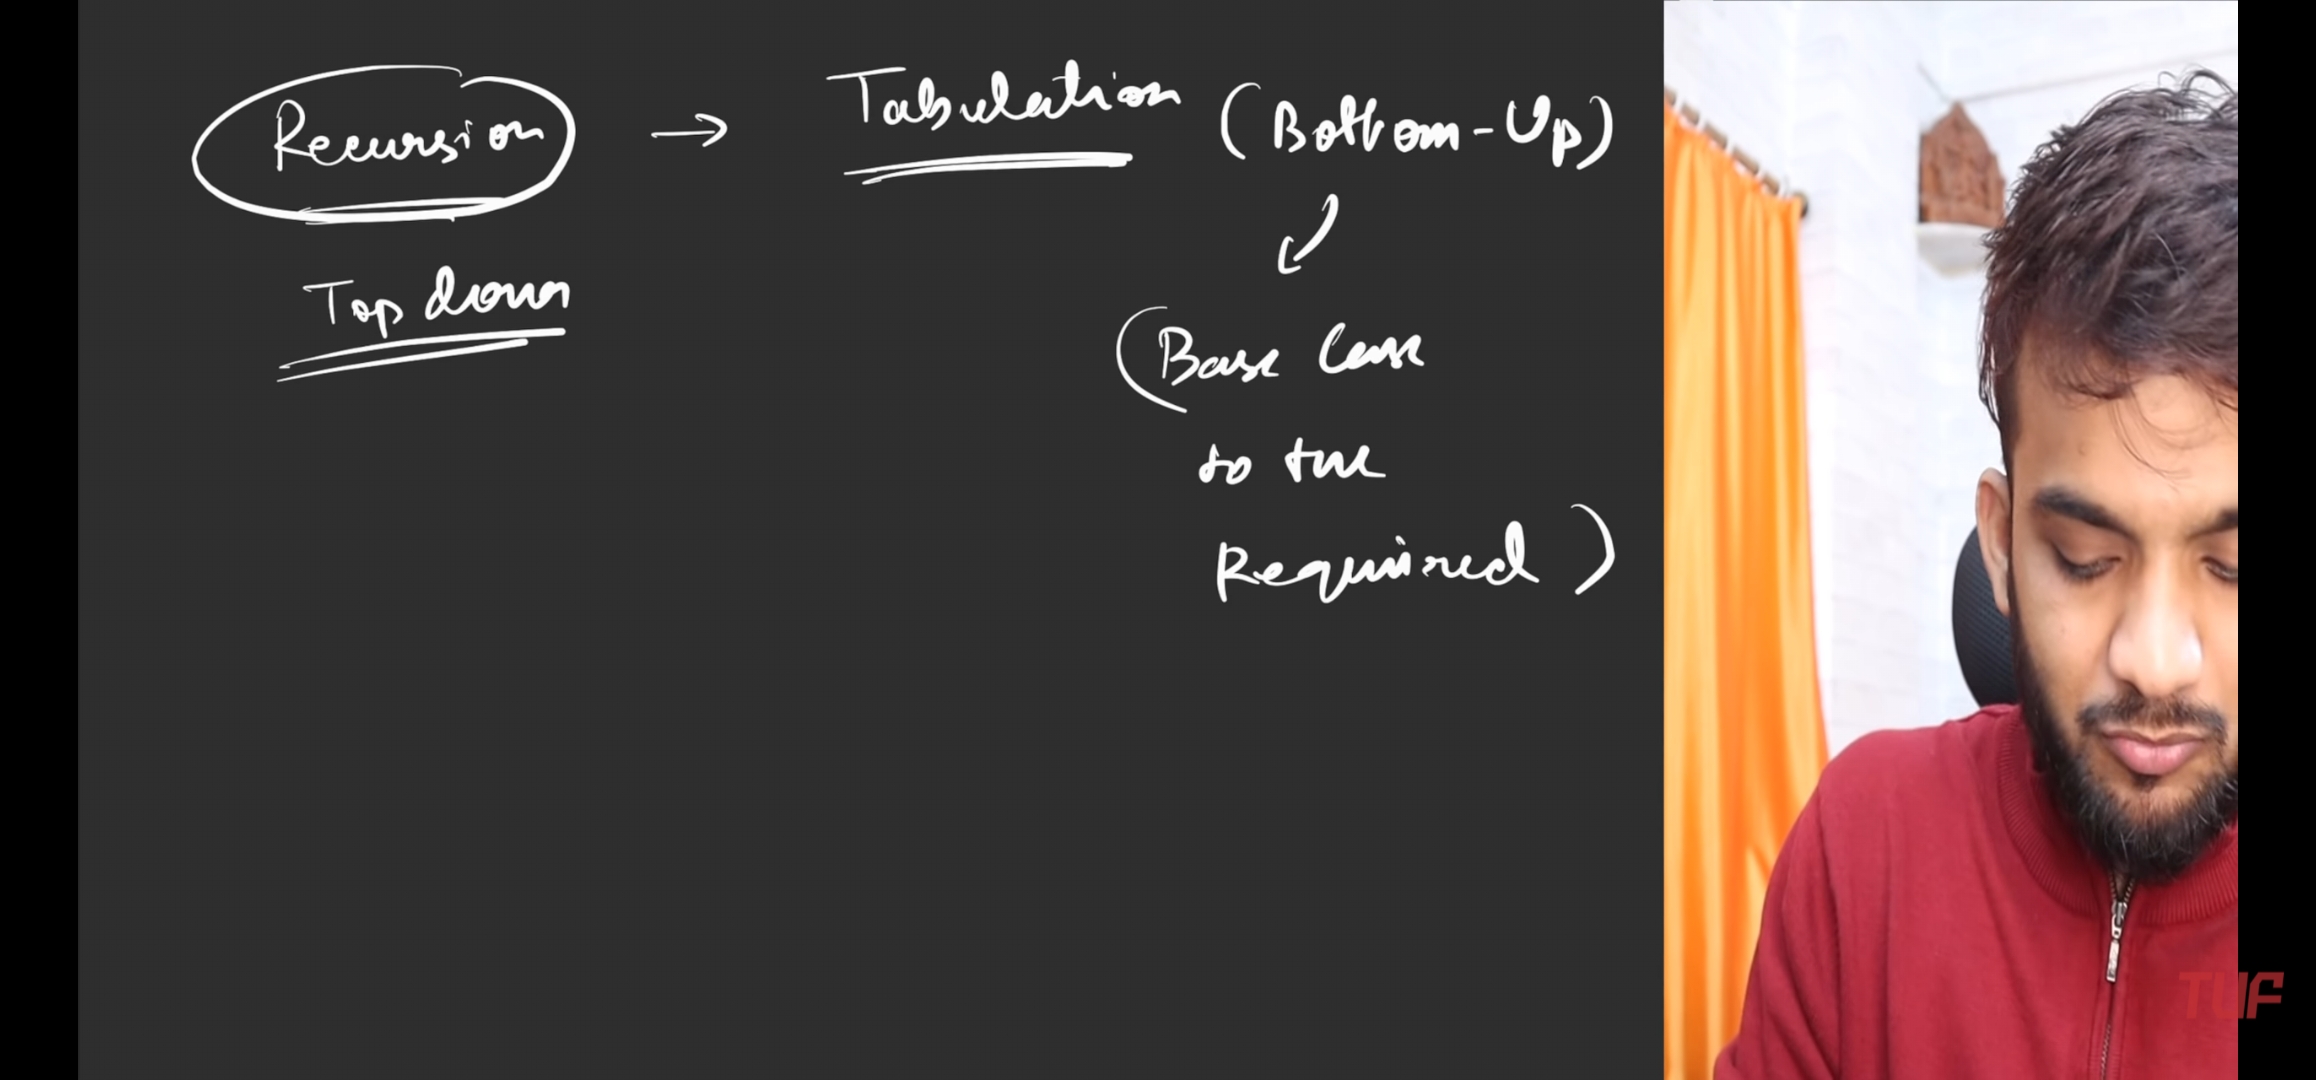 Recursion → Tabulation (Bottom-Up)
Top down
(Base Case
to the
Required)
TUF